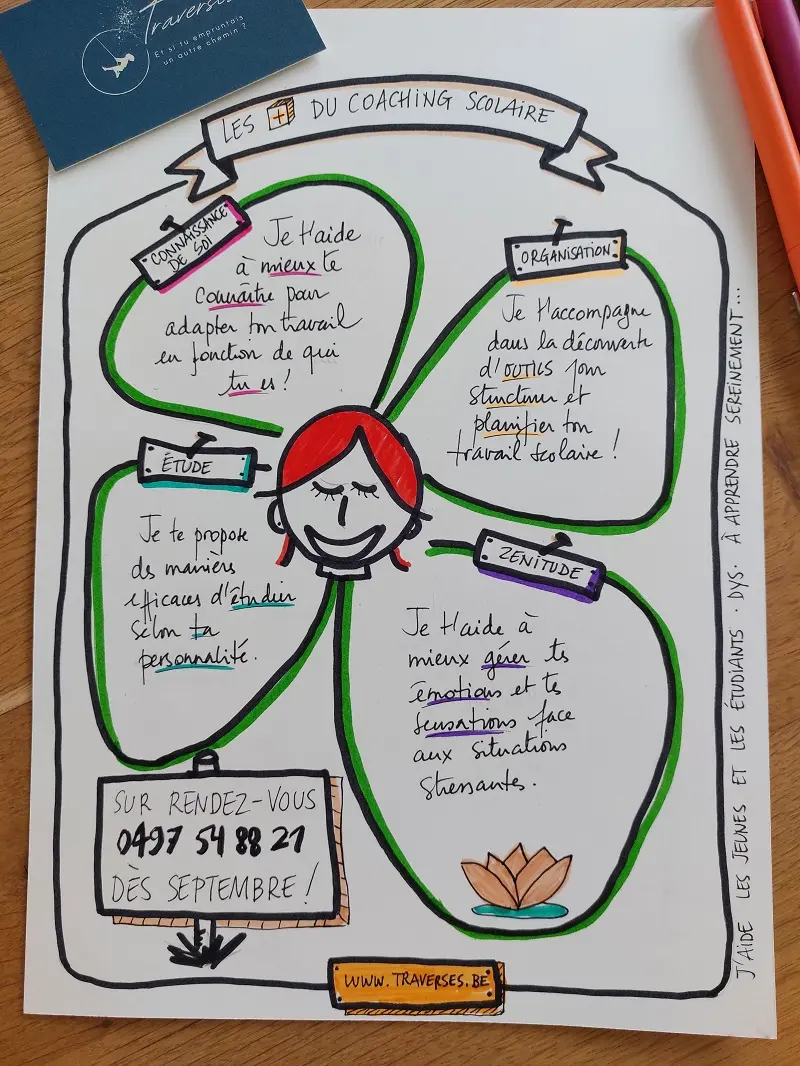 Traverses
Et si tu empruntais
un autre chemin ?
LES + DU COACHING SCOLAIRE
CONNAISSANCE
DE SOI
Je t'aide
à mieux te
connaître pour
adapter ton travail
en fonction de qui
tu es !
ORGANISATION
Je t'accompagne
dans la découverte
d'OUTILS pour
structurer et
planifier ton
travail scolaire !
ÉTUDE
Je te propose
des manières
efficaces d'étudier
selon ta
personnalité.
ZENITUDE
Je t'aide à
mieux gérer tes
émotions et tes
sensations face
aux situations
stressantes.
SUR RENDEZ-VOUS
0497 54 88 21
DÈS SEPTEMBRE !
WWW.TRAVERSES.BE
J'AIDE LES JEUNES ET LES ÉTUDIANTS · DYS· À APPRENDRE SEREINEMENT...